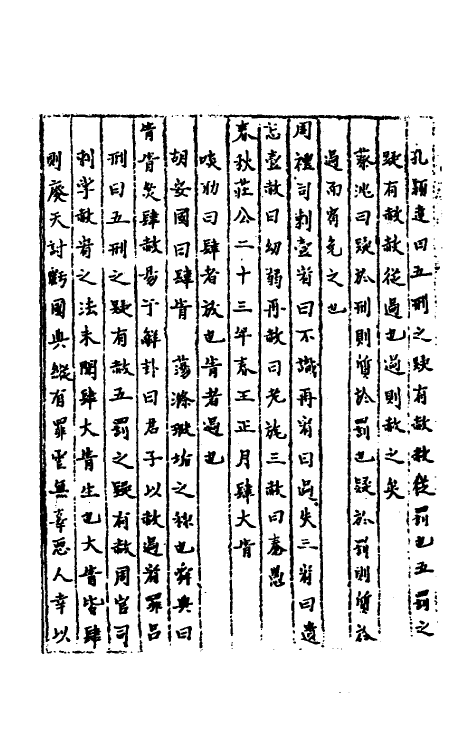 孔穎達曰五刑之疑有赦赦從罰也五罰之
疑有赦赦從過也過則赦之矣
蔡沈曰疑於刑則質於罰也疑於罰則質於
過而宥免之也
周禮司刺壹宥曰不識再宥曰過失三宥曰遺
忘壹赦曰幼弱再赦曰老旄三赦曰惷愚
春秋莊公二十三年春王正月肆大眚
啖助曰肆者放也眚者過也
胡安國曰肆眚 蕩滌瑕垢之稱也舜典曰
眚眚災肆赦易于解卦曰君子以赦過宥罪呂
刑曰五刑之疑有赦五罰之疑有赦周官司
刺掌赦宥之法未聞肆大眚生也大眚皆肆
則廢天討虧國典縱有罪虐無辜惡人幸以